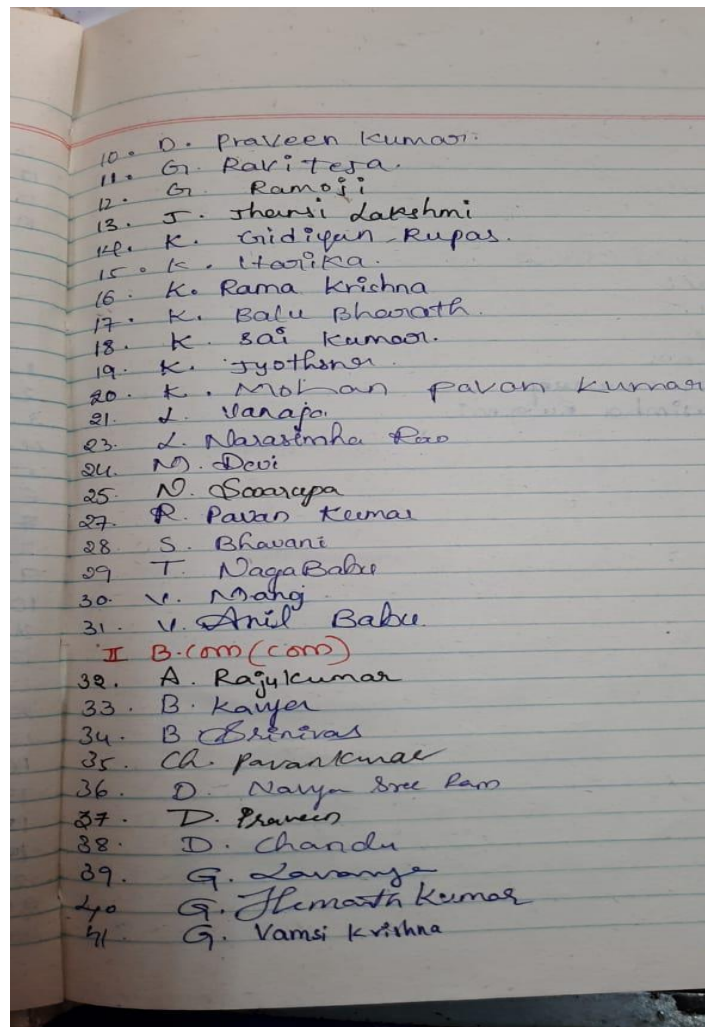 10. D. Praveen Kumar.
11. G. Ravi Teja.
12. G Ramoji
13. J. Jhansi Lakshmi
14. K. Gidiyan Rupas.
15. K. Harika.
16. K. Rama Krishna
17. K. Balu Bharath.
18. K Sai Kumar.
19. K. Jyothsna.
20. K. Mohan Pavan Kumar
21. L. Vanaja.
23. L. Narasimha Rao
24. M. Devi
25. N. Swarupa
27. R. Pavan Kumar
28. S. Bhavani
29 T. Naga Babu
30. V. Manoj
31. V. Anil Babu.
II B.com (com)
32. A. Rajukumar
33. B. Kavya
34. B Srinivas
35. Ch. Pavankumar
36. D. Navya Sree Ram
37. D. Praveen
38. D. Chandu
39. G. Lavanya
40 G. Hemanth Kumar
41. G. Vamsi Krishna